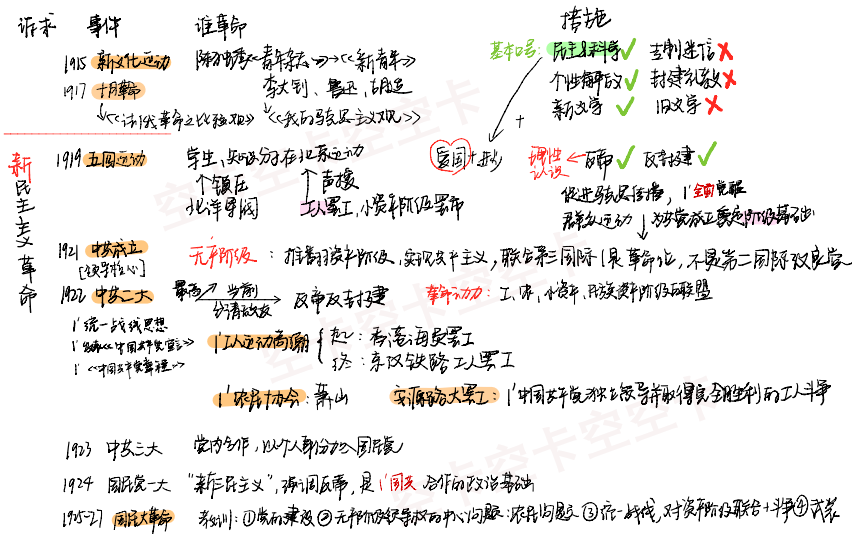 诉求 事件 谁革命 措施
1915 新文化运动 陈独秀<<青年杂志>>→<<新青年>> 基本口号: 民主&科学✓ 专制迷信✗
1917 十月革命 李大钊、鲁迅、胡适 个性解放✓ 封建礼教✗
新文学✓ 旧文学✗
<<法俄革命之比较观>> <<我的马克思主义观>> +
新民主主义革命
1919 五四运动 学生、知识分子在北京运动 爱国+进步 理性认识←反帝✓ 反封建✓
↑镇压 ↑声援
北洋军阀 工人罢工,小资产阶级罢市
促进马克思传播,1'全面觉醒
群众运动
1921 中共成立 无产阶级:推翻资产阶级,实现共产主义,联合第三国际
[领导核心]
1922 中共二大 最高 当前 反帝反封建 革命动力:工、农、小资产、民族资产阶级联盟
分清敌友
1'统一战线思想
1'发表<<中国共产党宣言>>
1'<<中国共产党章程>>
1'工人运动高潮 起:香港海员罢工
终:京汉铁路工人罢工
1'农民协会:萧山 安源路大罢工:1'中国共产党独立领导并取得完全胜利的工人斗争
1923 中共三大 党内合作,以个人身份加入国民党
1924 国民党一大 "新三民主义",强调反帝,是1'国共合作的政治基础
1925-27 国民大革命 教训:①党的建设②无产阶级领导权的中心问题:农民问题③统一战线,对资产阶级联合+斗争④武装